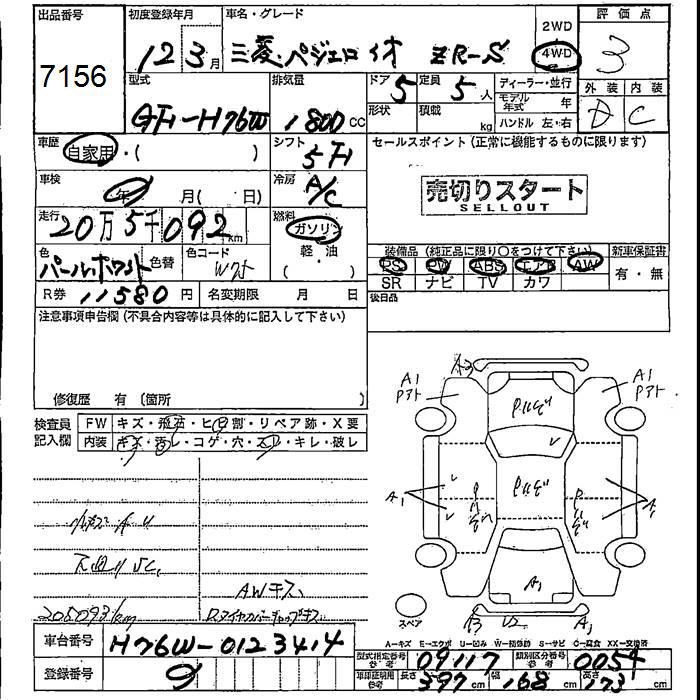 出品番号 初度登録年月 車名・グレード 2WD 評価点
7156 12年 3月 三菱・パジェロイオ ZR-S 4WD 3
型式 排気量 ドア 5 定員 5人 ディーラー・並行 外装 内装
GF-H76W 1800cc 形状 積載 kg モデル年式 年 D C
ハンドル 左・右
車歴 自家用・( ) シフト 5F セールスポイント(正常に機能するものに限ります)
車検 年 月( 日) 冷房 A/C 売切りスタート
SELLOUT
走行 20万5千092km 燃料 ガソリン
軽・油
( )
色 パールホワイト 色替 色コード 装備品(純正品に限り○をつけて下さい) 新車保証書
PS PW ABS エアB AW 有・無
SR ナビ TV カワ
R券 11580円 名変期限 月 日 後日品
注意事項申告欄(不具合内容等は具体的に記入して下さい)
修復歴 有(箇所 )
検査員 FW キズ・飛石・ヒビ割・リペア跡・X要
記入欄 内装 キズ・汚レ・コゲ・穴・スレ・キレ・破レ
A1 A1
A1 A1
A1
AWキズ
205093km
スペア
A2 A1
A-キズ E-エクボ U-凹み W-補修跡 S-サビ C-腐食 XX-交換済
車台番号 H76W-0123414
型式指定番号 参考 09117 類別区分番号 参考 0054
登録番号 車庫証明用 参考 長さ 397cm 幅 168cm 高さ 173cm